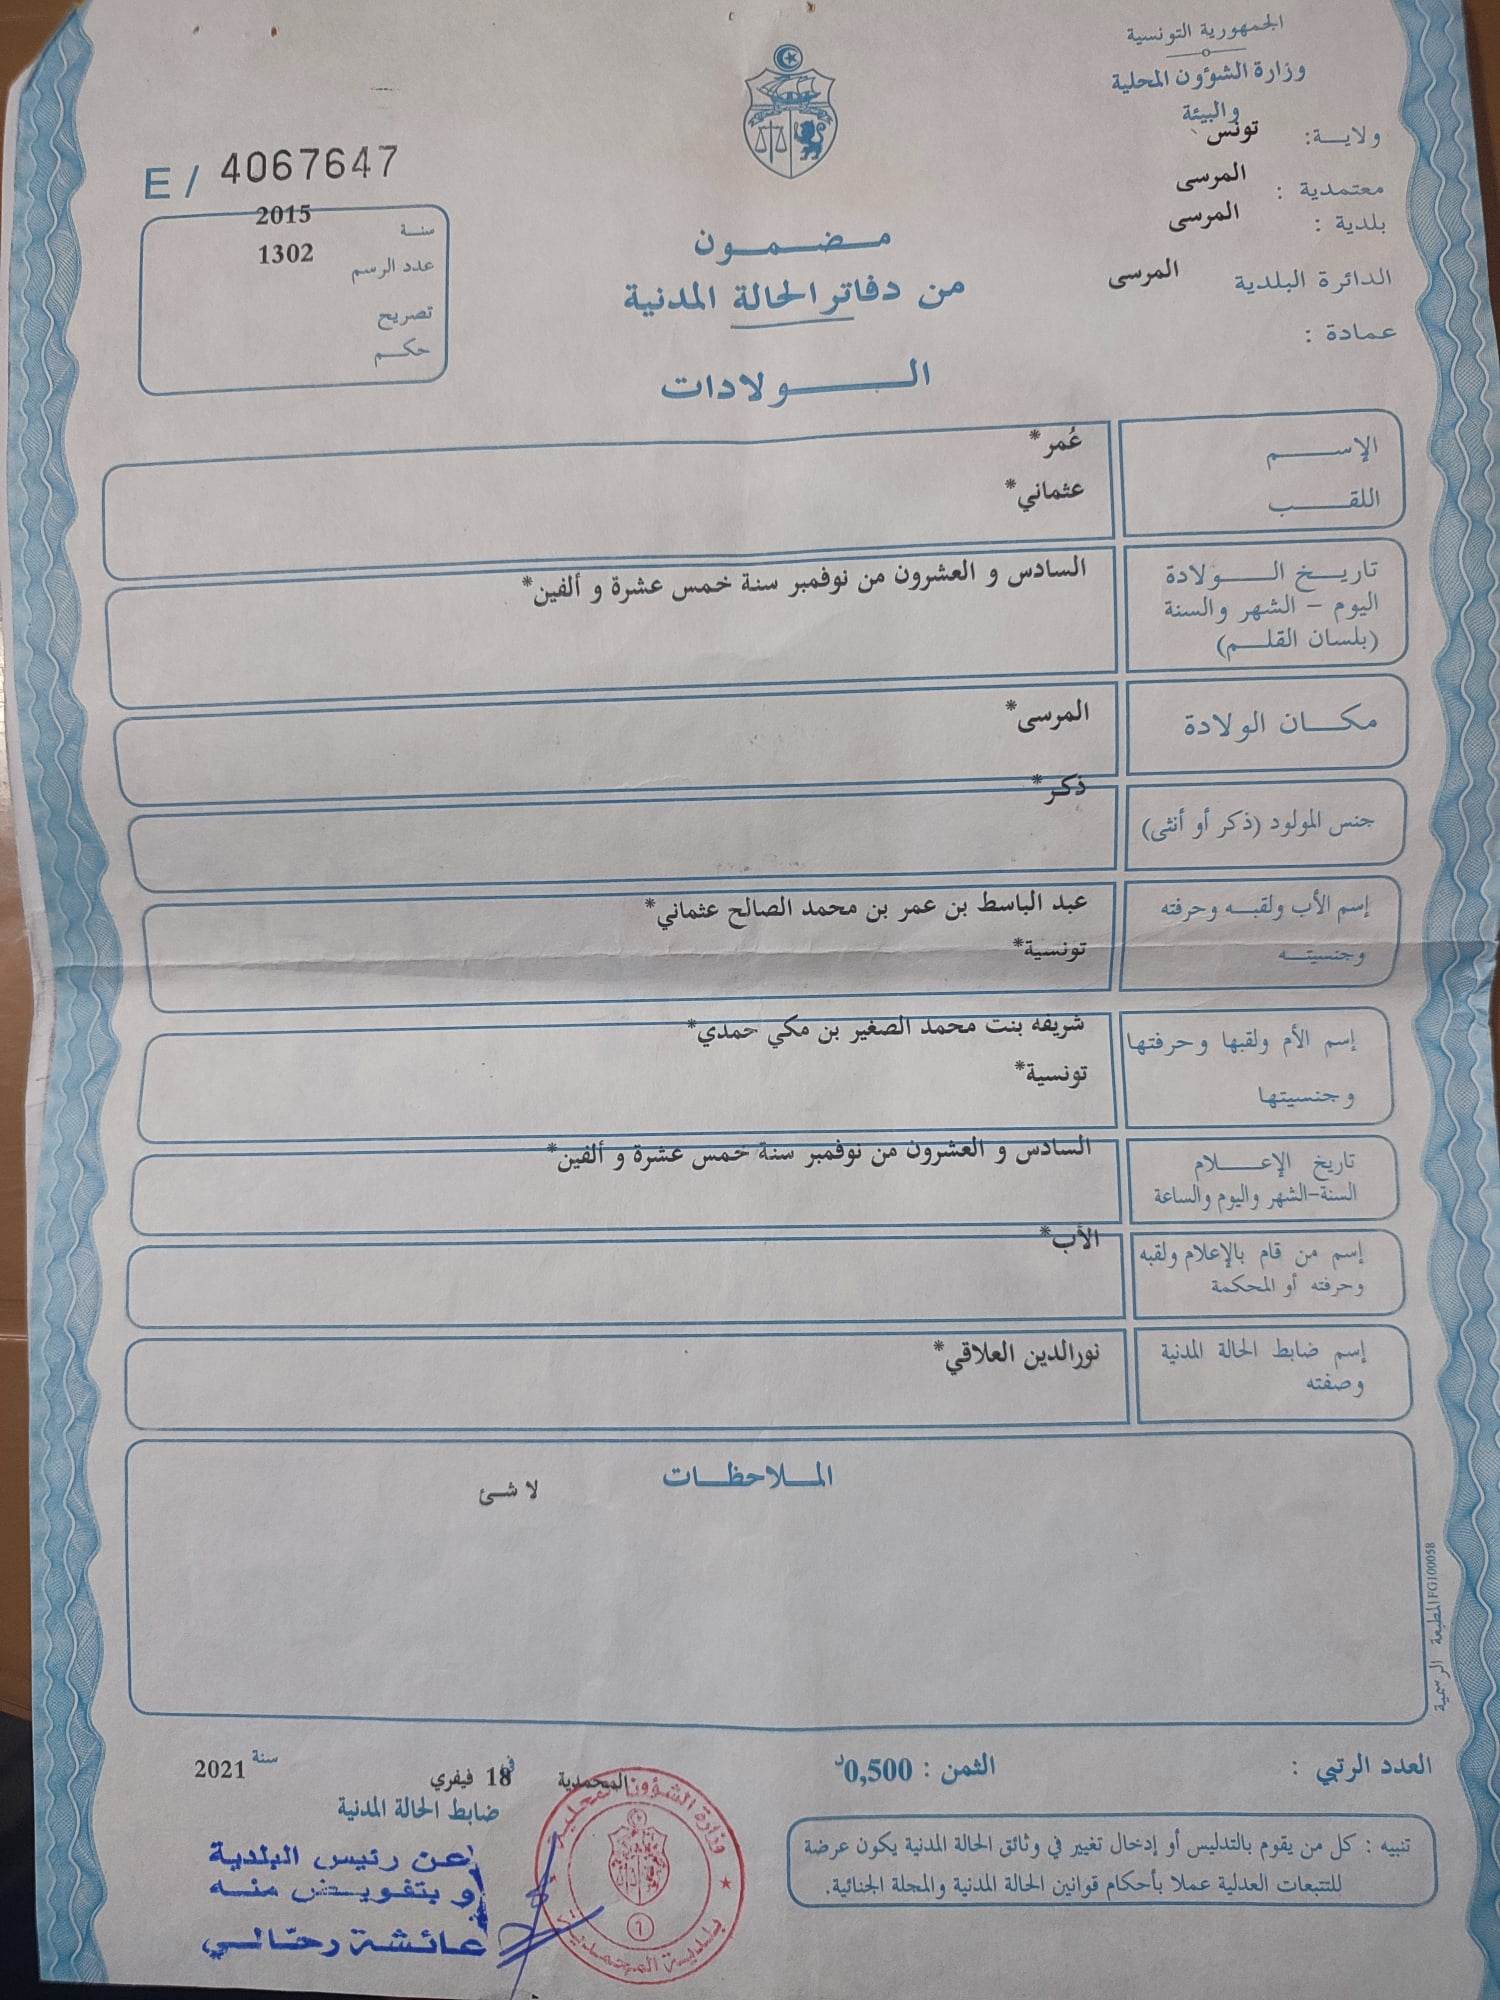 الجمهورية التونسية
وزارة الشؤون المحلية
والبيئة
ولايـــة: تونس
معتمدية : المرسى
بلدية : المرسى
الدائرة البلدية المرسى
عمادة :
E / 4067647
سنــة 2015
عدد الرسم 1302
تصريح
حكــم
مـضـمـون
من دفاتر الحالة المدنية
الـــولادات
الإســـم عُمر*
اللقـــب عثماني*
تاريــخ الـــولادة السادس و العشرون من نوفمبر سنة خمس عشرة و ألفين*
اليوم – الشهر والسنة
(بلسان القلـــم)
مكـــان الولادة المرسى*
جنس المولود (ذكر أو أنثى) ذكر*
إسم الأب ولقبـــه وحرفته عبد الباسط بن عمر بن محمد الصالح عثماني*
وجنسيتـــه تونسية*
إسم الأم ولقبها وحرفتها شريفه بنت محمد الصغير بن مكي حمدي*
وجنسيتها تونسية*
تاريخ الإعـــلام السادس و العشرون من نوفمبر سنة خمس عشرة و ألفين*
السنة-الشهر واليوم والساعة
إسم من قام بالإعلام ولقبه الأب*
وحرفته أو المحكمة
إسم ضابط الحالة المدنية نورالدين العلاقي*
وصفته
الملاحظـــات
لا شئ
المطبعة الرسمية FG100058
العدد الرتبي :
الثمن : 0,500د
المحمدية في 18 فيفري سنة 2021
ضابط الحالة المدنية
عن رئيس البلدية
و بتفويض منه
عائشة رحّالي
وزارة الشؤون المحلية
بلدية المحمدية
تنبيه : كل من يقوم بالتدليس أو إدخال تغيير في وثائق الحالة المدنية يكون عرضة
للتتبعات العدلية عملا بأحكام قوانين الحالة المدنية والمجلة الجنائية.